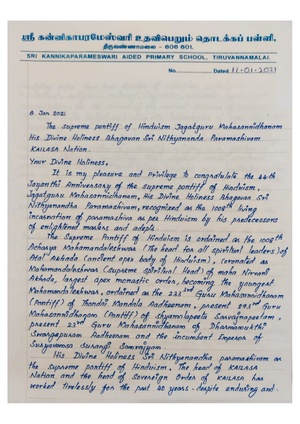 ஸ்ரீ கன்னிகாபரமேஸ்வரி உதவிபெறும் தொடக்கப் பள்ளி.
திருவண்ணாமலை - 606 601.
SRI KANNIKAPARAMESWARI AIDED PRIMARY SCHOOL, TIRUVANNAMALAI.
No. Dated 11-01-2021
8 Jan 2021
The supreme pontiff of Hinduism Jagatguru Mahasannidhanam
His Divine Holiness Bhagavan Sri Nithyananda Paramashivam
KAILASA Nation.
Your Divine Holiness,
It is my pleasure and Privilege to congratulate the 44th
Jayanthi Anniversary of the supreme pontiff of Hinduism,
Jagatguru Mahasannidhanam, His Divine Holiness Bhagavan Sri
Nithyananda Paramashivam, recognized as the 1008th living
incarnation of paramashiva as per Hinduism by his predecessors
of enlightened masters and adepts.
The Supreme Pontiff of Hinduism is ordained as the 1008th
Acharya Mahamandaleshwar (The head for all spiritual leaders) of
Atal Akhada (ancient apex body of Hinduism), coronated as
Mahamandaleshwar (supreme Spiritual Head) of Maha Nirvani
Akhada, largest apex monastic order, becoming the youngest
Mahamandaleshwar, ordained as the 233rd Guru Mahasannidhanam
(Pontiff) of Thondai Mandala Aadheenam, present 293rd Guru
Mahasannidhanam (Pontiff) of Shyamalapeeta Sarvajnapeetam,
present 23rd Guru Mahasannidhanam of Dharmamukthi
Swargapuram Aadheenam and the Incumbent Emperor of
Suryavamsa Surangi Samrajyam.
His Divine Holiness Sri Nithyanandha paramashivam as
the supreme pontiff of Hinduism, The head of KAILASA
Nation and the head of Sovereign Order of KAILASA has
worked tirelessly for the past 40 years - despite enduring and